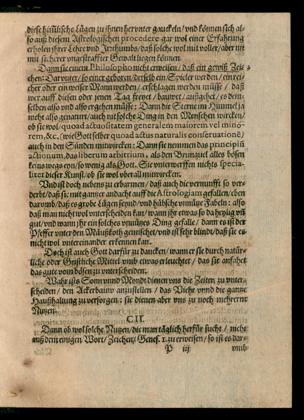 diese häufftische Lügen zu jhnen herunter gauckeln/ vnd können sich al-
so auß diesem Astrologischen procedere gar wol einer Erfahrung
erholen jhrer Lehr vnd Irrthumbs/ daß solche wol mit voller/ aber nit
mit sicherer vnarsträfflicher Gewalt liegen können.
Dann sie einem Philosopho nicht erweisen/ daß ein gewiß Zei-
chen: Darunter/ so einer geboren/ derselb ein Spieler werden/ ein rei-
cher oder ein weiser Mann werden/ erschlagen werden müsse/ daß
wer auff diesen oder jenen Tag freyet/ bauwet/ außgehet/ es dem-
selben also vnd also ergehen müsse: Dann die Sterne am Himmel ja
nicht also genaturt/ auch nit solche Ding in den Menschen wircken/
ob sie wol/ quod ad cuositatem generalem maiorem vel mino-
rem, &c. wie Gott selber quoad actus naturalis conseruatione/
auch in den Sünden mitwircken: Dann sie nemmen das principiū
actionum, das liberum arbitrium, als den Brunquel alles bösen
keins wegs ein/ so wenig als Gott. Sie verwerffen nichts specia-
litet dieser Kunst/ ob sie wol vberall mitwircken.
Vnd ist doch nichts zu erbarmen/ daß auch die vernunfft so ver-
derbt/ daß sie mit gantzer andacht auff die Astrologiam gefallen/ eben
darumb/ daß es grobe Lügen seynd/ vnd hübsche vnnütze Fabeln: also
daß man nicht wol vnterscheiden kan/ wann jhr etwas so da hepig vñ
gut/ vnd wann jhr ein solches vnnützes Ding gefalle/ dann es ist der
Pfeffer vnter den Mäußkoth gemischet/ vnd ist sehr blind/ daß sie es
nicht wol vntereinander erkennen kan.
Doch ist auch Gott darfür zu dancken/ wann er sie durch natür-
liche oder Geistliche Mittel vmb etwas erleuchtet/ das sie anfahet
das gute vom bösen zu vnterscheiden.
Wahr ists/ Sonn vnd Mond dienen vns die Zeiten zu vnter-
scheiden/ den Ackerbauw anzustellen/ das Viehe vnnd die gantze
Haußhaltung zu versorgen: sie dienen aber vns zu noch mehrerm
Nutzen.
C. II.
Dann ob wol solche Nutzen/ die man täglich herfür sucht/ nicht
auß dem einigen Wort/ Zeichen/ Genes. 1. zu erweisen/ so ist es dar-
P iij vmb